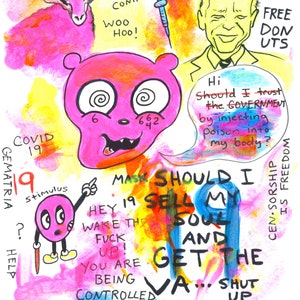 WOO
HOO!
FREE
DON
UTS
6 6 6
4 2
Hi
Should I trust
the GOVERNMENT
by injecting
poison into
my body?
COVID
19
GEMATRIA
19
stimulus
?
HELP
MASK
19
HEY
WAKE THE
FUCK
UP!
YOU ARE
BEING
CONTROLLED
SHOULD I
SELL MY
SOUL
AND
GET THE
VA... SHUT
UP
CEN·SORSHIP
IS FREEDOM